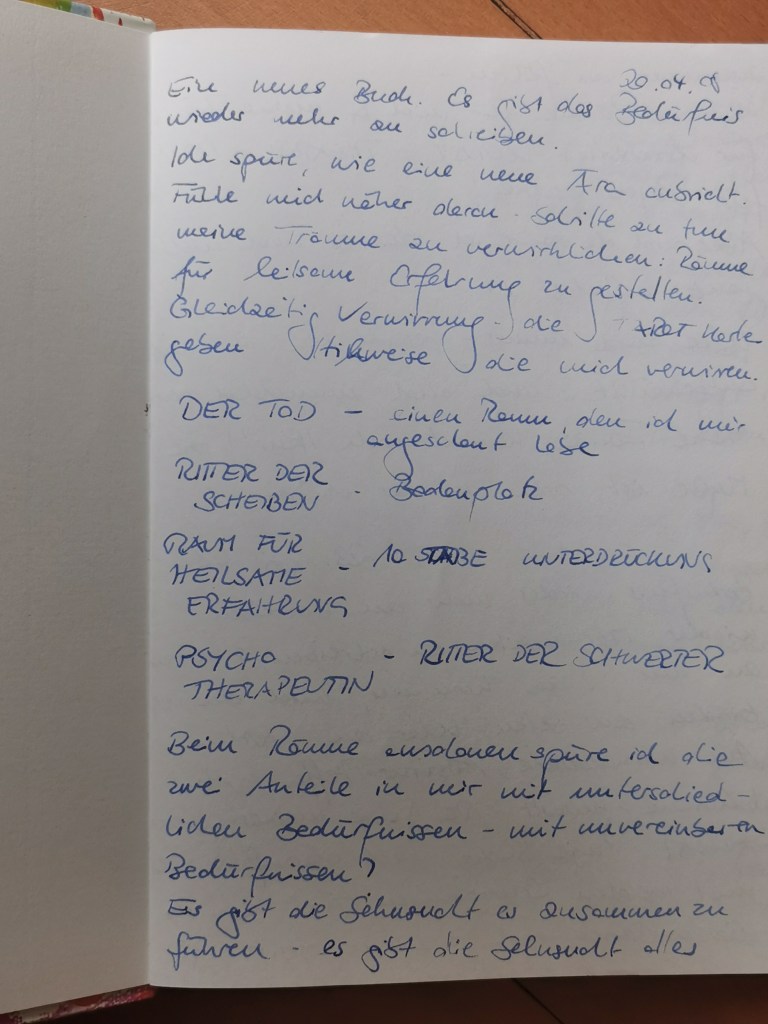 20.04.
Ein neues Buch. Es gibt das Bedürfnis
wieder mehr zu schreiben.
Ich spüre, wie eine neue Ära anbricht.
Fühle mich näher daran Schritte zu tun
meine Träume zu verwirklichen: Räume
für heilsame Erfahrung zu gestalten.
Gleichzeitig Verwirrung - die TAROT Karte
geben Hinweise die mich verwirren.
DER TOD - einen Raum, den ich mir
angeschaut habe
RITTER DER
SCHEIBEN - Bodenplatz
RAUM FÜR
HEILSAME - 10 STÄBE UNTERDRÜCKUNG
ERFAHRUNG
PSYCHO - RITTER DER SCHWERTER
THERAPEUTIN
Beim Räume anschauen spüre ich die
zwei Anteile in mir mit unterschied-
lichen Bedürfnissen - mit unvereinbaren
Bedürfnissen?
Es gibt die Sehnsucht es zusammen zu
führen - es gibt die Sehnsucht alles